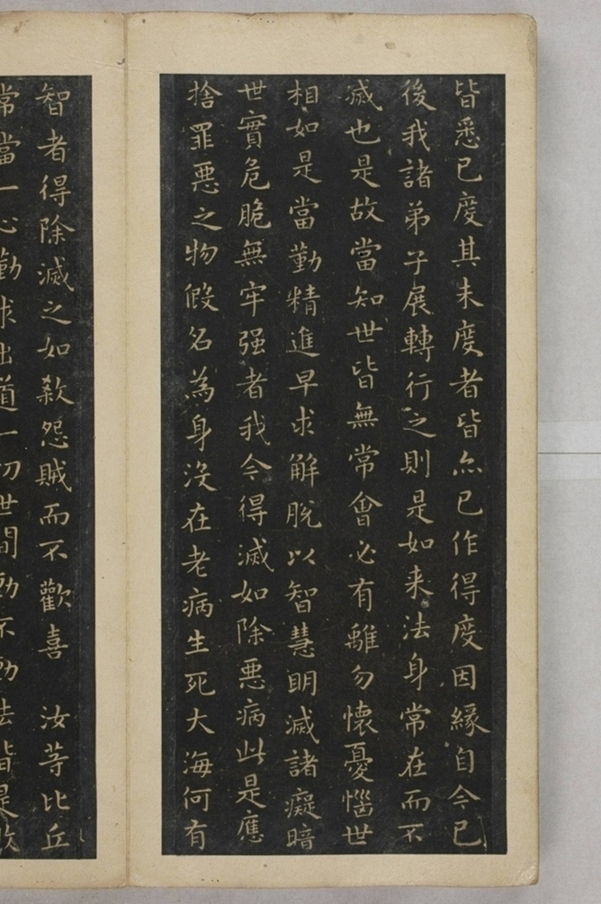 皆悉已度其未度者皆亦已作得度因緣自今已
後我諸弟子展轉行之則是如来法身常在而不
滅也是故當知世皆無常會必有離勿懷憂惱世
相如是當勤精進早求解脫以智慧明滅諸癡暗
世實危脆無牢强者我今得滅如除惡病此是應
捨罪惡之物假名為身没在老病生死大海何有
智者得除滅之如殺怨賊而不歡喜 汝等比丘
常當一心勤求出道一切世間動不動法皆是敗